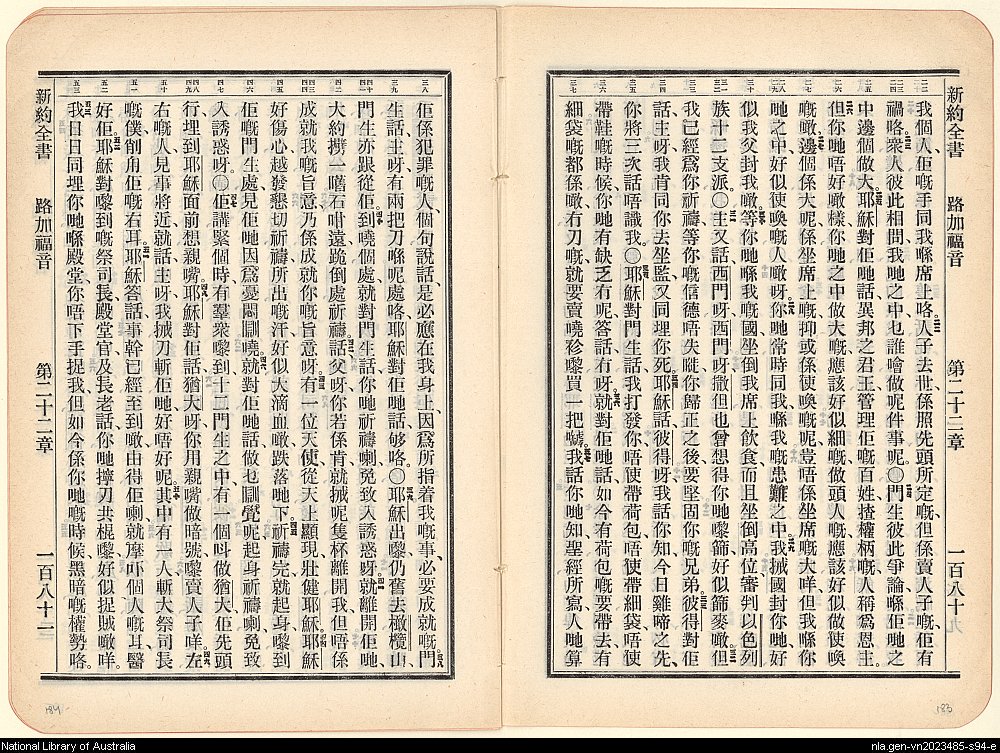 新約全書 路加福音 第二十二章 一百八十
我個人佢嘅手同我喺席上咯人子去世係照先頭所定嘅但係賣人子嘅佢有
禍咯衆人彼此相問我哋之中乜誰噲做呢件事呢○門生彼此爭論喺佢哋之
中邊個做大耶穌對佢哋話異邦之君王管理佢嘅百姓揸權柄嘅人稱爲恩主
但你哋唔好噉樣你哋之中做大嘅應該好似細嘅做頭人嘅應該好似做使喚
嘅噉邊個係大呢係坐席嘅抑或係使喚嘅呢豈唔係坐席嘅大咩但我喺你
哋之中好似使喚嘅人噉呀你哋常時同我喺我嘅患難之中我搣國封你哋好
似我父封我噉等你哋喺我嘅國坐倒我席上飲食而且坐倒高位審判以色列
族十二支派○主又話西門呀西門呀撒但也曾想得你哋嚟篩好似篩麥噉但
我已經爲你祈禱等你嘅信德唔失㗎你歸正之後要堅固你嘅兄弟彼得對佢
話主呀我肯同你去坐監又同埋你死耶穌話彼得呀我話你知今日雞啼之先
你將三次話唔識我○耶穌對門生話我打發你唔使帶荷包唔使帶細袋唔使
帶鞋嘅時候你哋有缺乏有呢答話冇呀就對佢哋話如今有荷包嘅要帶去有
細袋嘅都係噉有刀嘅就要賣嘵衫嚟買一把嚹我話你哋知聖經所寫人哋算
佢係犯罪嘅人個句說話是必應在我身上因爲所指着我嘅事必要成就嘅門
生話主呀有兩把刀喺呢處咯耶穌對佢哋話够咯○耶穌出嚟仍舊去橄欖山
門生亦跟從佢到嘵個處就對門生話你哋祈禱喇免致入誘惑呀就離開佢哋
大約擗一嚿石咁遠跪倒處祈禱話父呀你若係肯就搣呢隻杯離開我但唔係
成就我嘅旨意乃係成就你嘅旨意呀有一位天使從天上顯現壯健耶穌耶穌
好傷心越發懇切祈禱所出嘅汗好似大滴血噉跌落哋下祈禱完就起身嚟到
佢嘅門生處見佢哋因爲憂悶瞓嘵就對佢哋話做乜瞓覺呢起身祈禱喇免致
入誘惑呀○佢講緊個時有羣衆嚟到十二門生之中有一個呌做猶大佢先頭
行埋到耶穌面前想親嘴耶穌對佢話猶大呀你用親嘴做暗號嚟賣人子咩左
右嘅人見事將近就話主呀我搣刀斬佢哋好唔好呢其中有一人斬大祭司長
嘅僕削甪佢嘅右耳耶穌答話事幹已經至到噉由得佢喇就摩吓個人嘅耳醫
好佢耶穌對嚟到嘅祭司長殿堂官及長老話你哋擰刀共棍嚟好似捉賊噉咩
我日日同埋你哋喺殿堂你唔下手捉我但如今係你哋嘅時候黑暗嘅權勢咯
新約全書 路加福音 第二十二章 一百八十
184
183
National Library of Australia
nla.gen-vn2023485-s94-e